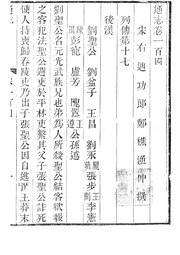 通志卷一百四
宋右迪功郎鄭樵漁仲撰
列傳第十七
後漢
劉聖公 劉盆子 王昌 劉永 張步 李憲
彭寵 盧芳 隗囂 公孫述
劉聖公名元光武族兄也弟為人所殺聖公結客欲報
之客犯法聖公避吏於平林吏繫其父子張聖公詐死
使人持喪歸舂陵吏乃出子張聖公因自逃匿王莽末